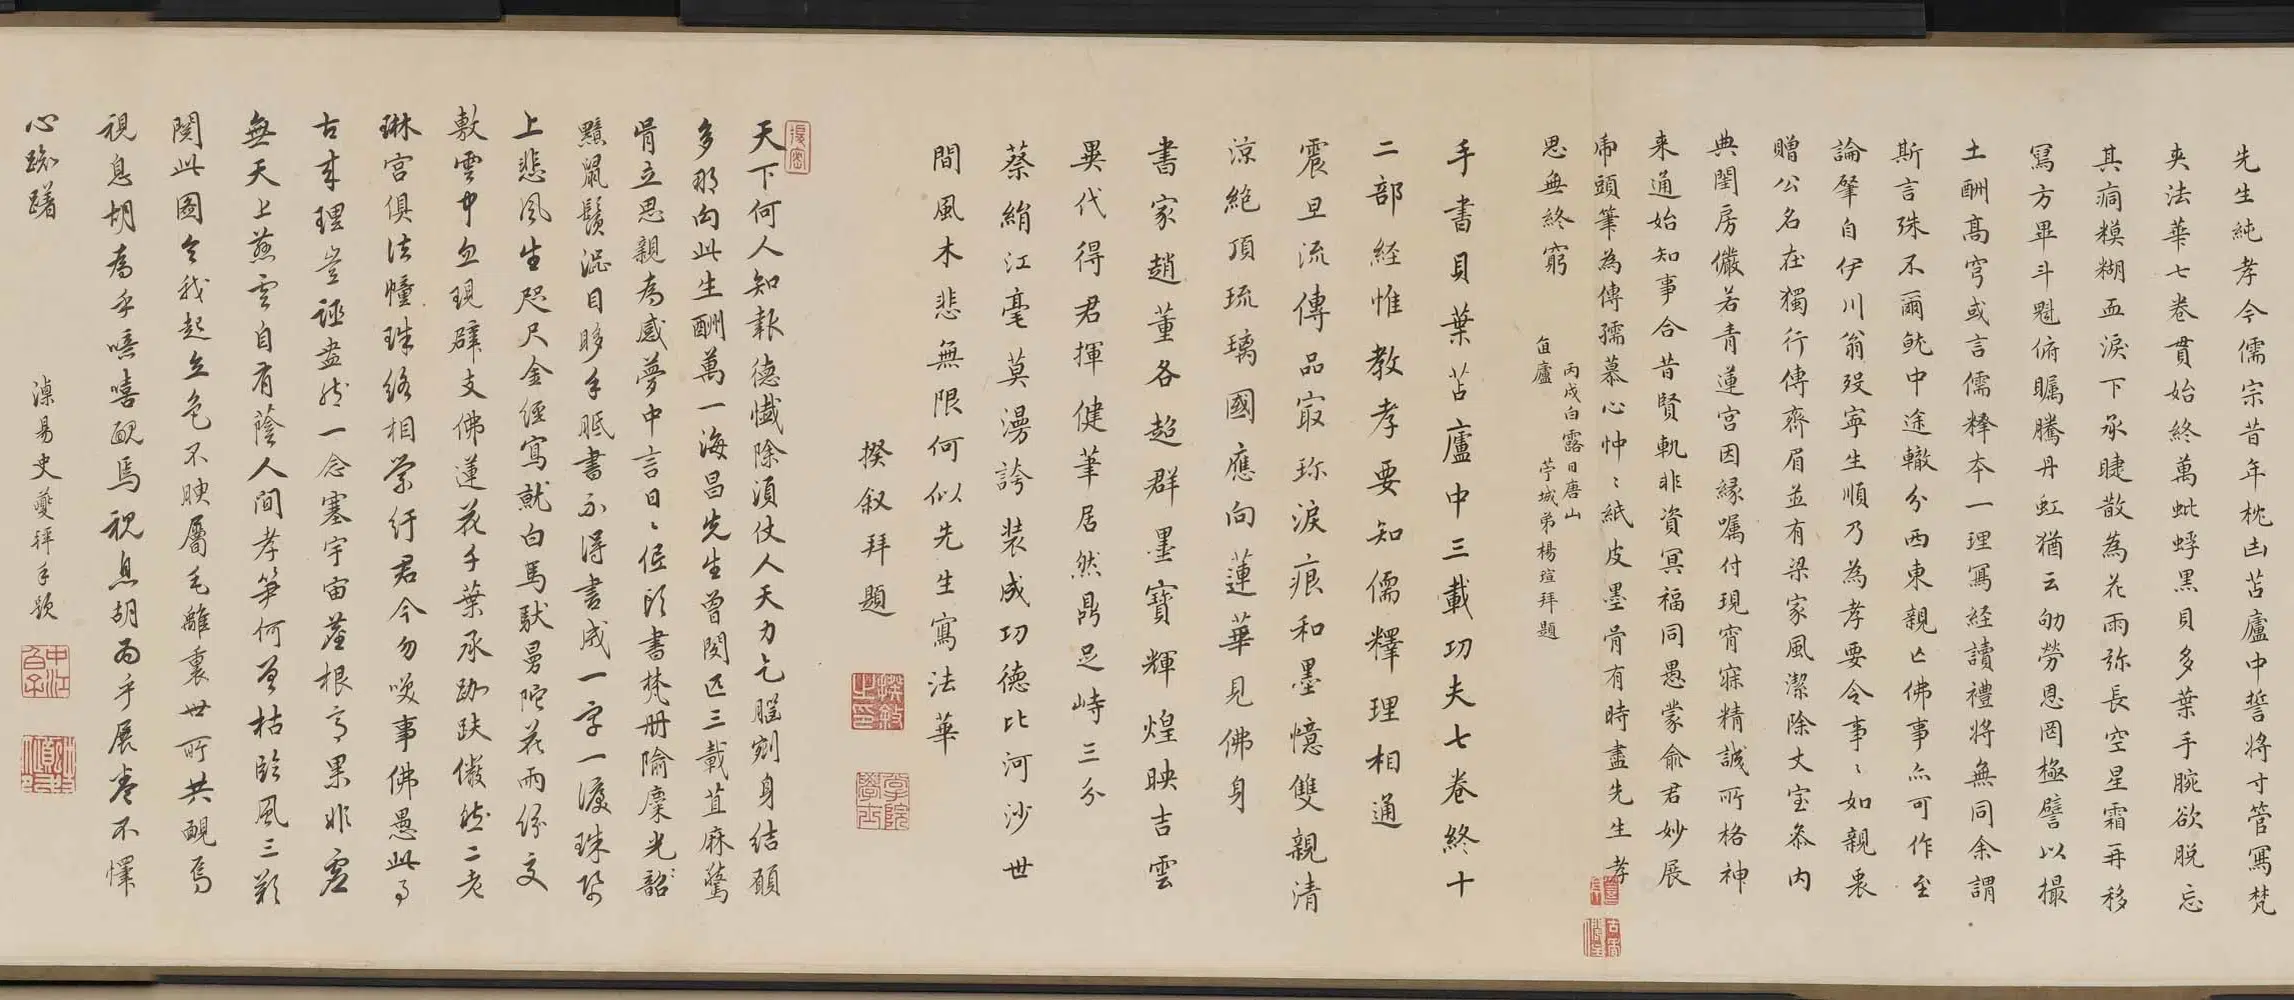 先生純孝今儒宗昔年枕凷苫廬中誓將寸管寫梵
夾法華七卷貫始終萬虬蜉黑貝多葉手腕欲脫忘
其痌糢糊血淚下承睫散為花雨弥長空星霜再移
寫方畢斗覬俯矚騰丹虹猶云劬勞恩罔極譬以撮
土酬高穹或言儒釋本一理寫経讀禮將無同余謂
斯言殊不爾魷中途轍分西東親亡佛事亦可作至
論肇自伊川翁歿寧生順乃為孝要令事〻如親衷
贈公名在獨行傳齊眉並有梁家風潔除丈室叅內
典閨房儼若青蓮宮因緣囑付現宵寐精誠所格神
来通始知事合昔賢軌非資冥福同愚蒙俞君妙展
帍頭筆為傳孺慕心忡〻紙皮墨骨有時盡先生孝
思無終窮
丙戌白露日唐山
缶廬
苧城弟楊瑄拜題
手書貝葉苫廬中三載功夫七卷終十
二部経惟教孝要知儒釋理相通
震旦流傳品寂珎淚痕和墨憶雙親清
涼絶頂琉璃國應向蓮華見佛身
書家趙董各超群墨寶輝煌映吉雲
異代得君揮健筆居然鼎足峙三分
蔡絹江毫莫漫誇装成功德比河沙世
間風木悲無限何似先生寫法華
揆叙拜題
揆敘之印
掌院學士
天下何人知報德懺除須仗人天力乞腦剜身結願
多那向此生酬萬一海昌先生曾閱匹三載苴麻鶩
骨立思親為感夢中言日〻侹頋書梵册隃麋光韶
黯鼠鬚澀目眵手胝書不得書成一字一淚珠紙
上悲風生咫尺金経寫就白馬馱曼陀花雨紛交
敷雲中忽現辟支佛蓮花千葉承跏趺儼然二老
琳宮俱法幢珠絡相縈紆君今勿嘆事佛愚此事
古來理豈誣盡然一念塞宇宙萱根高果非虛
無天上慈雲自有蔭人間孝笋何曾枯臨風三歎
閱此圖令我起立色不腴屬毛離裏世所共覥焉
視息胡為乎嘻嘻覥焉視息胡為乎展卷不懌
心踟躇
澟昜史夔拜手題